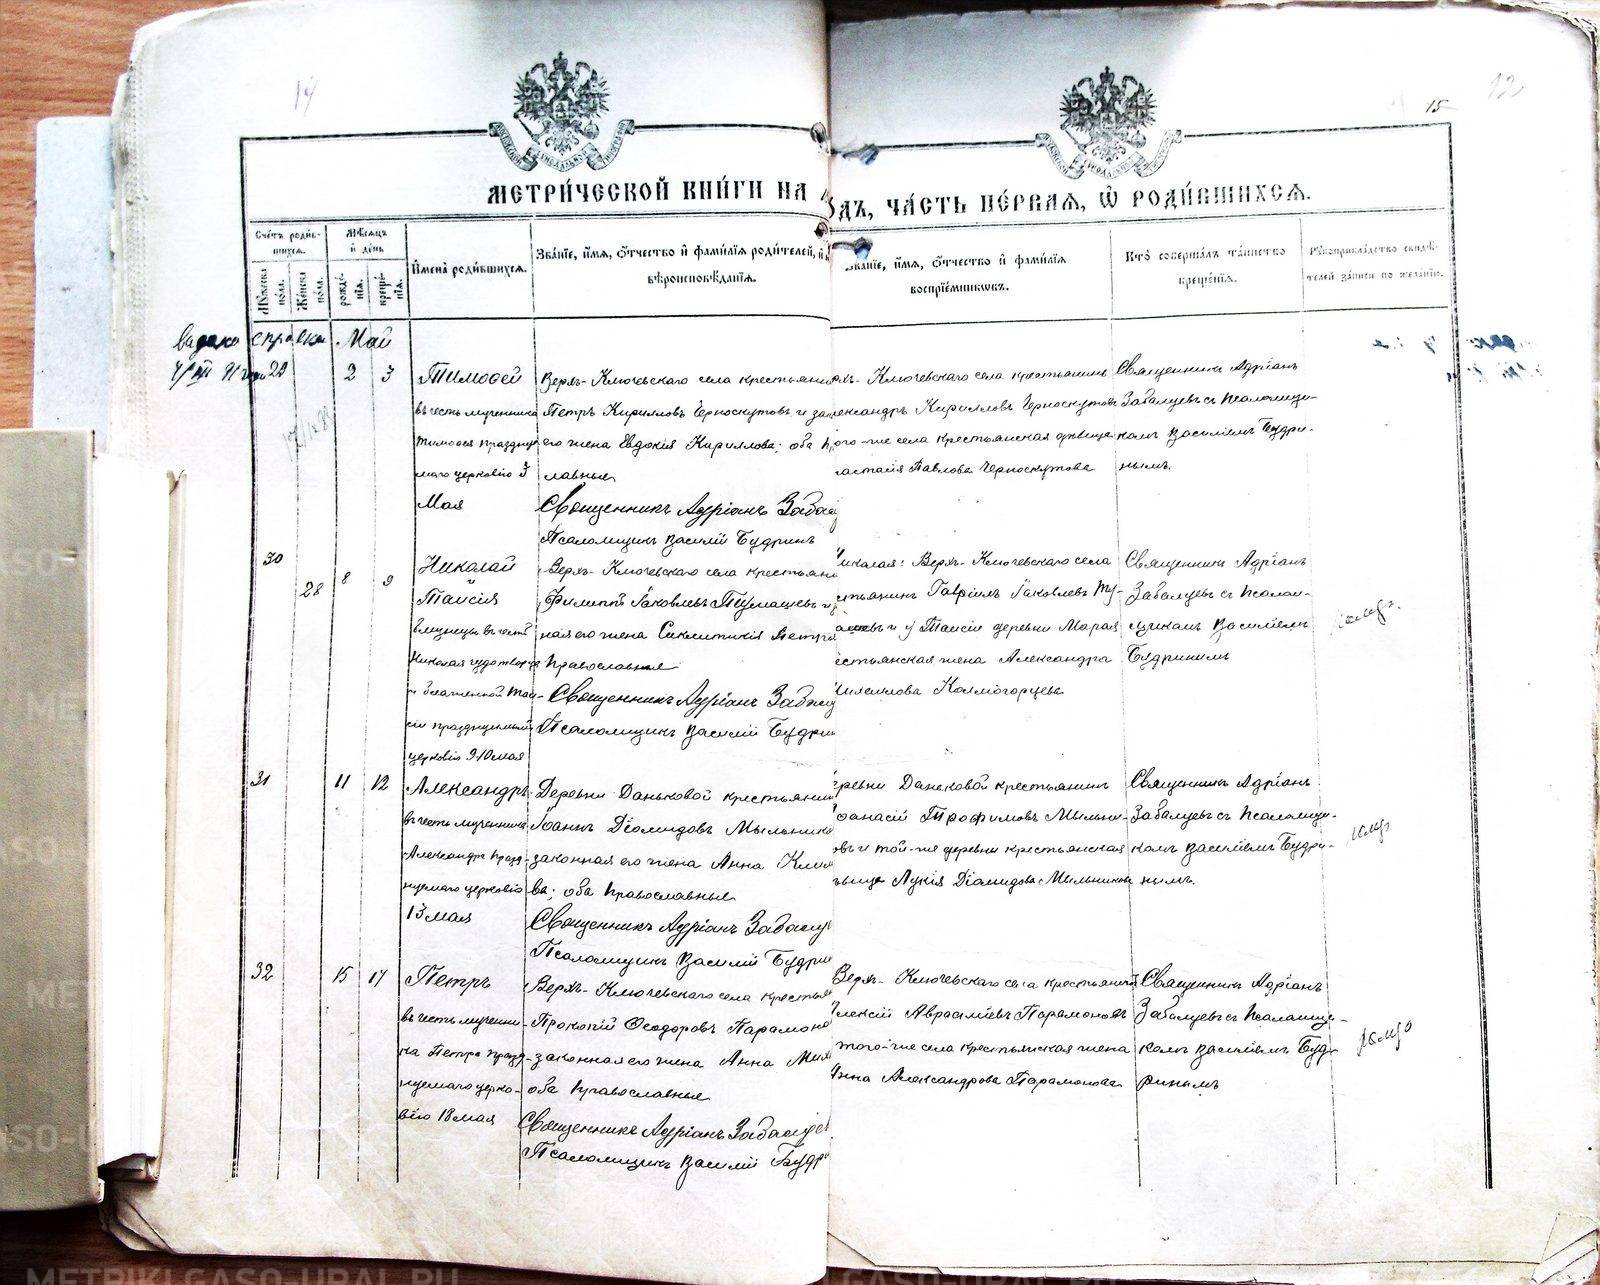 14
15
12
МЕТРИ́ЧЕСКОЙ КНИ́ГИ НА
ОДЪ, ЧА́СТЬ ПЕ́РВАЯ, Ѿ РОДИ́ВШИХСЯ.
Сче́тъ роди́в-
шихся.
Мѣ́сяцъ
и де́нь
Имена̀ роди́вшихся.
Зва́нїе, и́мя, о́тчество и фами́лїя роди́телей, и
вѣроисповѣ́данїя.
Му́жеска по́ла.
Же́нска по́ла.
рожде́нїя.
креще́нїя.
Зва́нїе, и́мя, о́тчество и фами́лїя
воспрїе́мниковъ.
Кто̀ соверша́лъ та́инство
креще́нїя.
Рꙋкоприкла́дство свидѣ́-
телей за́писи по жела́нїю.
справка Май
29 2 3
Тимоѳей
въ честь мученика
Тимоѳея праздну
маго церковію 3
Мая
Верхъ-Ключевскаго села крестьянин
Петръ Кирилловъ Черноскутовъ и зак
его жена Евдокія Кириллова; оба п
лавные
Священникъ Адріанъ Забал
Псаломщикъ Василій Будринъ
рхъ-Ключевскаго села крестьянинъ
лександръ Кирилловъ Черноскутовъ
ого-же села крестьянская дѣвица
астасія Павлова Черноскутова
Священникъ Адріанъ
Забалуевъ съ Псаломщи-
комъ Василіемъ Будри-
нымъ.
30 28 8 9
Николай
Таисія
близнецы въ честь
Николая чудотворца
и блаженной Таи-
сіи празднуемыхъ
церковію 9 10 мая
Верхъ-Ключевскаго села крестьяни
Филиппъ Іаковлевъ Тумашевъ и
ная его жена Синклитикія Петров
Православные
Священникъ Адріанъ Забалу
Псаломщикъ Василій Будрин
иколая: Верхъ-Ключевскаго села
стьянинъ Гавріилъ Іаковлевъ Ту-
ашевъ и у Таисіи деревни Марая
естьянская жена Александра
Колмогорцева
Священникъ Адріанъ
Забалуевъ съ Псалом-
щикомъ Василіемъ
Будринымъ
31 11 12
Александръ
въ честь мученика
Александра празд-
нуемаго церковію
13 мая
Деревни Даньковой крестьянин
Іоаннъ Діомидовъ Мыльнико
законная его жена Анна Клим
ва; оба Православные
Священникъ Адріанъ Забалу
Псаломщикъ Василій Будрин
еревни Даньковой крестьянинъ
фанасій Трофимовъ Мыльни-
овъ и той-же деревни крестьянская
ѣвица Лукія Діомидова Мыльникова
Священникъ Адріанъ
Забалуевъ съ Псаломщи-
комъ Василіемъ Будри-
нымъ.
32 15 17
Петръ
въ честь мучени-
ка Петра празд-
нуемаго церко-
вію 18 мая
Верхъ-Ключевскаго села крестья
Прокопій Ѳеодоровъ Парамоно
законная его жена Анна Мих
оба Православные
Священникъ Адріанъ Забалуе
Псаломщикъ Василій Будр
Верхъ-Ключевскаго села крестьянинъ
Алексій Авраамiевъ Парамоновъ
того-же села крестьянская жена
Анна Александрова Парамонова
Священникъ Адріанъ
Забалуевъ съ Псаломщи-
комъ Василіемъ Буд-
ринымъ
METRIKI.GASO-URAL.RU